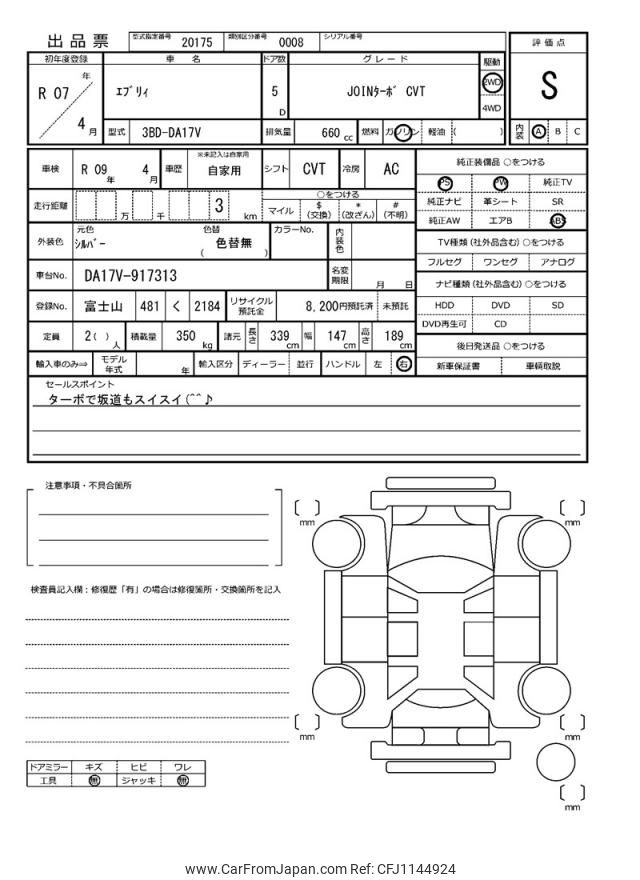 出品票 型式指定番号 20175 類別区分番号 0008 シリアル番号
評価点
S
内装 A B C
初年度登録 車名 ドア数 グレード 駆動
R 07 年 4 月
ｴﾌﾞﾘｨ 5 D JOINﾀｰﾎﾞ CVT 2WD
4WD
型式 3BD-DA17V 排気量 660 cc 燃料 ガソリン 軽油 ( )
車検 R 09 年 4 月 車歴 ※未記入は自家用 自家用 シフト CVT 冷房 AC
走行距離 万 千 3 km
○をつける
マイル $(交換) *(改ざん) #(不明)
外装色 元色 ｼﾙﾊﾞｰ 色替 ( 色替無 ) カラーNo. 内装色
車台No. DA17V-917313 名変期限 月 日
登録No. 富士山 481 く 2184 リサイクル預託金 8,200円預託済 未預託
定員 2( ) 人 積載量 350 kg 諸元 長さ 339 cm 幅 147 cm 高さ 189 cm
輸入車のみ⇒ モデル年式 年 輸入区分 ディーラー 並行 ハンドル 左 右
純正装備品 ○をつける
PS PW 純正TV
純正ナビ 革シート SR
純正AW エアB ABS
TV種類 (社外品含む) ○をつける
フルセグ ワンセグ アナログ
ナビ種類 (社外品含む) ○をつける
HDD DVD SD
DVD再生可 CD
後日発送品 ○をつける
新車保証書 車輌取説
セールスポイント
ターボで坂道もスイスイ(^^♪
注意事項・不具合箇所
検査員記入欄：修復歴「有」の場合は修復箇所・交換箇所を記入
ドアミラー キズ ヒビ ワレ
工具 無 ジャッキ 無
mm
mm
mm
mm
mm
www.CarFromJapan.com Ref: CFJ1144924